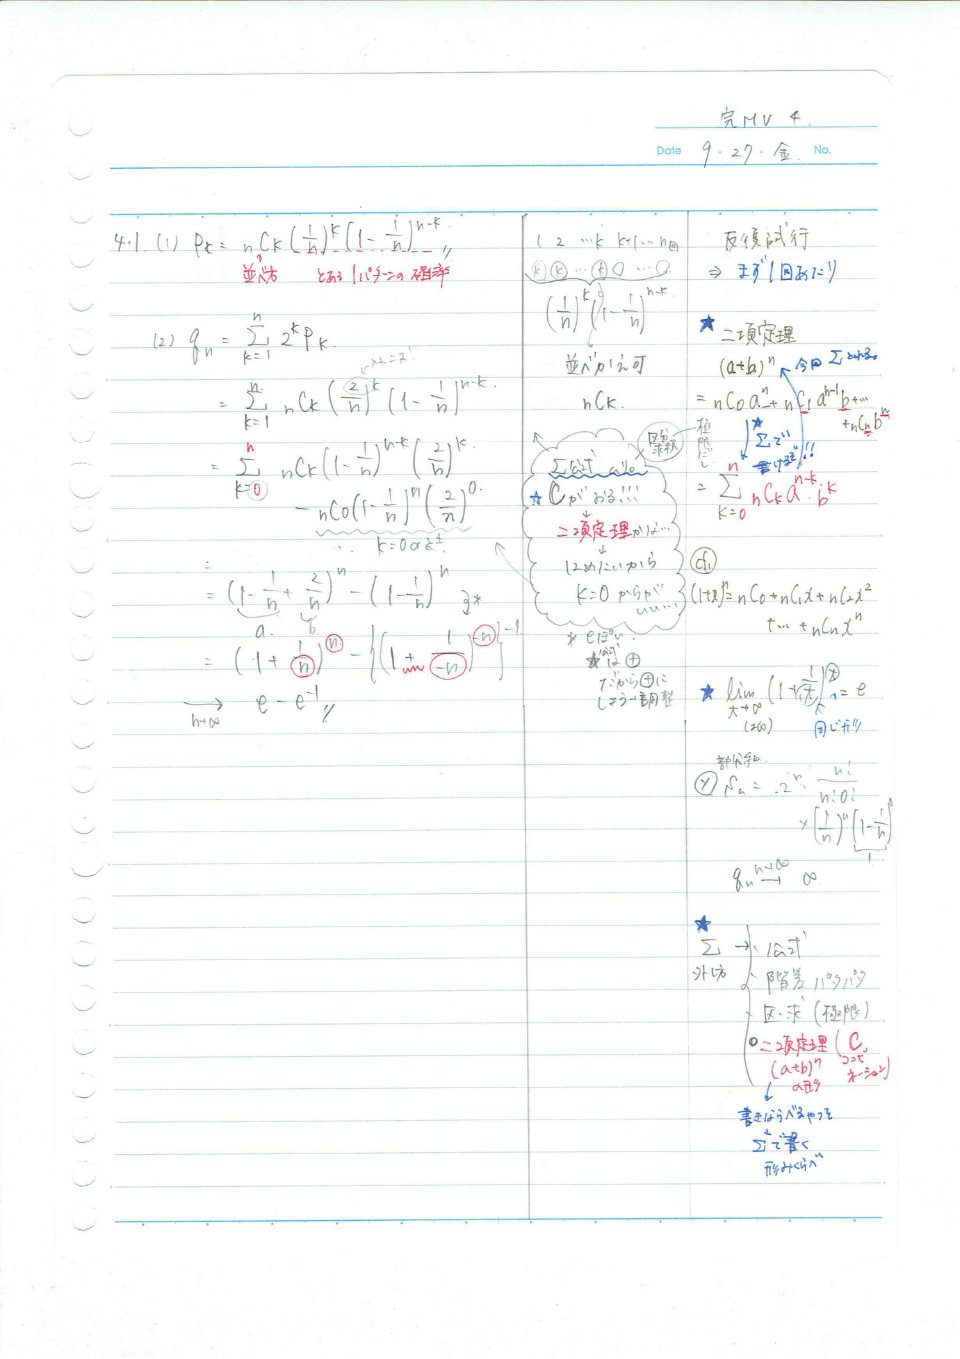 完MV 4.
Date 9・27・金. No.
4.1. (1) Pk = nCk (1/n)^k (1 - 1/n)^(n-k) 〃
並べ方 とある1パターンの確率
(2) qn = Σ[k=1→n] 2^k Pk.
= Σ[k=1→n] nCk (2/n)^k (1 - 1/n)^(n-k).
= Σ[k=0→n] nCk (1 - 1/n)^(n-k) (2/n)^k.
- nC0 (1 - 1/n)^n (2/n)^0.
k=0のとき
= (1 - 1/n + 2/n)^n - (1 - 1/n)^n }*
a. b.
= (1 + 1/n)^n - {(1 + 1/(-n))^(-n)}^(-1)
→[n→∞] e - e^(-1) 〃
1 2 … k k+1 … n回
(1/n)^k (1 - 1/n)^(n-k).
並べかえ可
nCk.
区分求積
Σ公式
★ Cがおる!!!
↓
二項定理かな…
↓
はめたいから
k=0からが
いい…
* eぽい.
だから⊕に
しよう→調整
反復試行
⇒ まず1回あたり
★ 二項定理
(a+b)^n
今回Σとれる。
= nC0 a^n + nC1 a^(n-1) b + …
+ nCn b^n
★Σで
書けるぞ!!
= Σ[k=0→n] nCk a^(n-k)・b^k
(1+x)^n = nC0 + nC1 x + nC2 x^2
+ … + nCn x^n
★ lim[x→∞] (1 + 1/x)^x = e
同じ形!!
部分和
qn →[n→∞] ∞
★
Σ → 公式
外し方 階差 パタパタ
区・求 (極限)
◎二項定理 (C コンビネーション)
(a+b)^n
↓
書きならべるやつを
Σで書く
形みくらべ